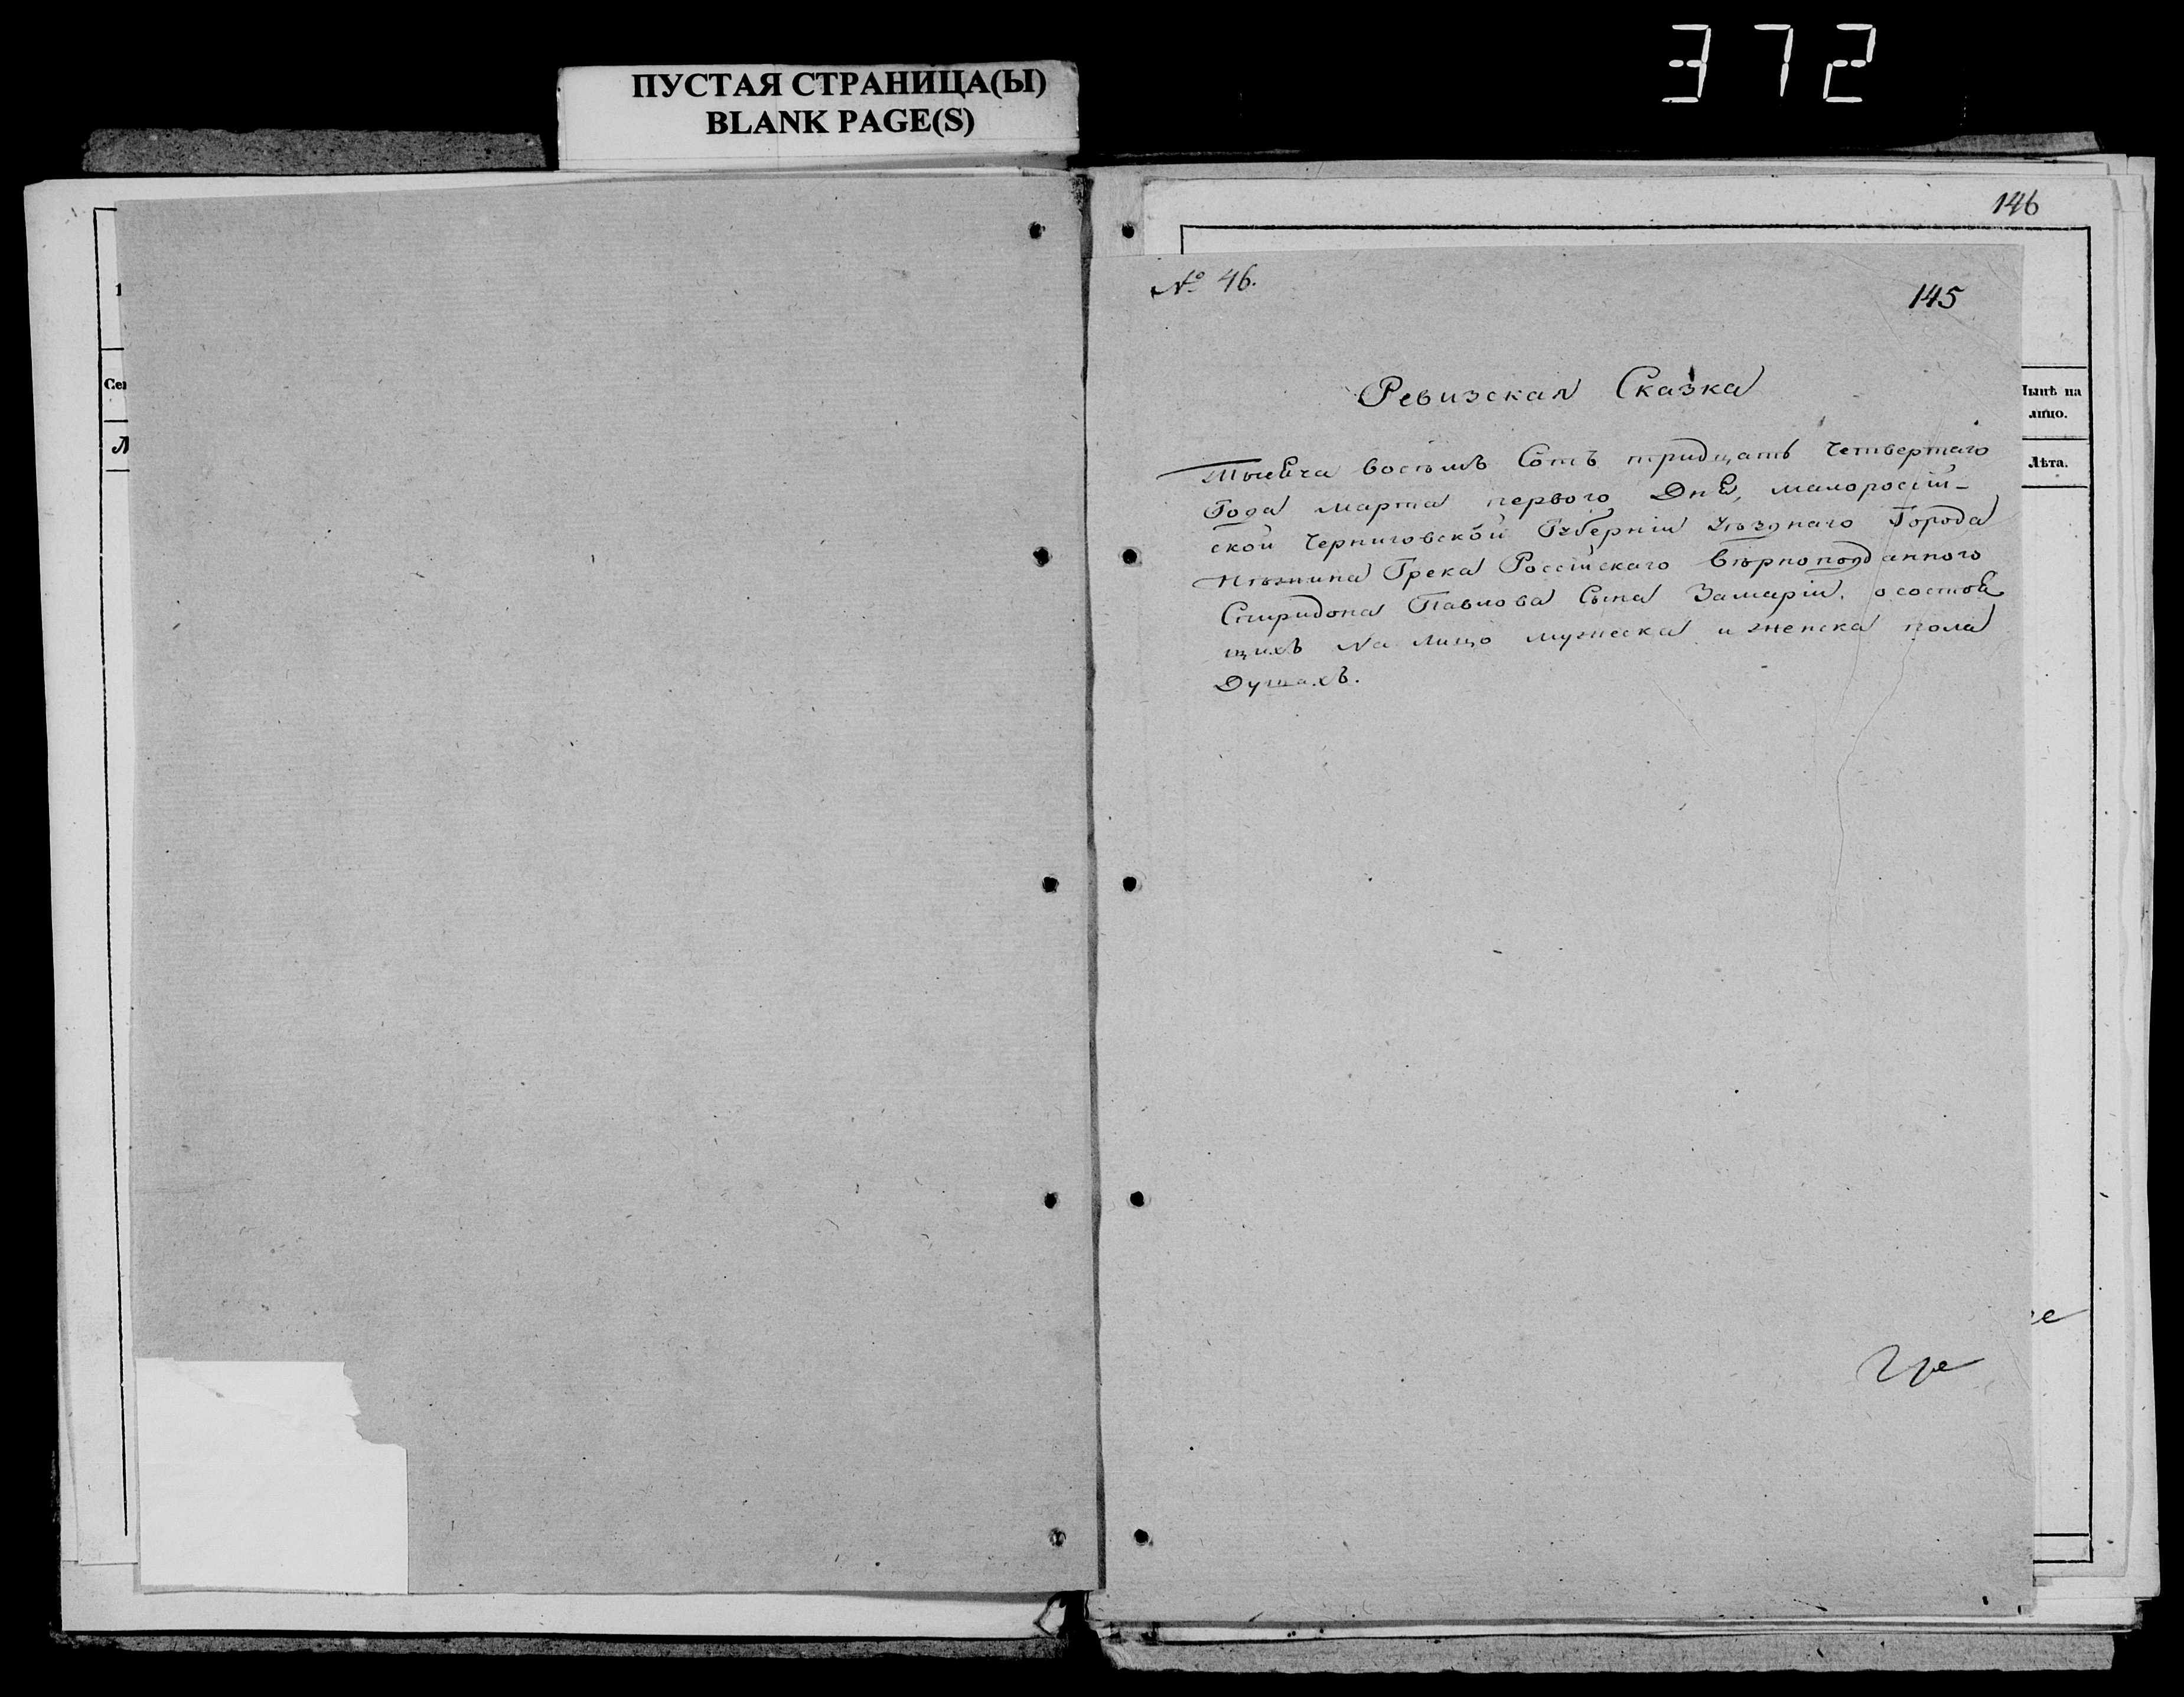 372
ПУСТАЯ СТРАНИЦА(Ы)
BLANK PAGE(S)
146
№ 46.
145
Ревизская Сказка
Тысяча восемь Сотъ тридцать Четвертаго
Года марта первого Дня, малоросій-
ской Черниговской Губерніи Уѣзднаго Города
Нѣжина Грека Россійскаго вѣрноподданного
Спиридона Павлова Сына Замарія. о состоя
щихъ На лицо мужеска и женска пола
Душахъ.
Нынѣ на
лицо.
Лѣта.